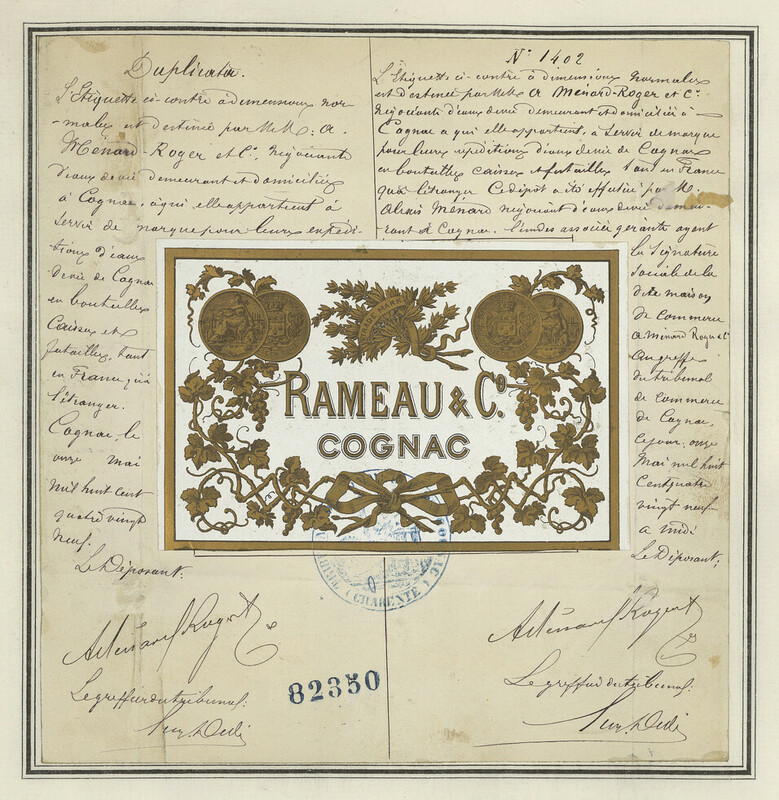 Duplicata.
L'Etiquette ci-contre à dimensions nor-
males est destinée par MM: A.
Ménard-Roger et Cie, négociants
d'eaux de vie demeurant et domiciliés
à Cognac, à qui elle appartient à
servir de marque pour leurs expédi-
tions d'eaux
de vie de Cognac
en bouteilles
Caisses et
futailles, tant
en France qu'à
l'étranger.
Cognac, le
onze mai
mil huit cent
quatre vingt
neuf.
Le Déposant:
A Ménard Roger & Cie
Le greffier du tribunal:
N° 1402
L'Etiquette ci-contre à dimensions normales
est destinée par MM A Ménard-Roger et Cie
négociants d'eaux de vie demeurant et domiciliés à
Cognac à qui elle appartient, à servir de marque
pour leurs expéditions d'eaux de vie de Cognac
en bouteilles caisses et futailles tant en France
qu'à l'étranger Ce dépôt a été effectué par M.
Alexis Ménard négociant d'eaux de vie demeu-
rant à Cognac. l'un des associés gérants ayant
la signature
sociale de la
dite maison
de commerce
A Ménard Roger & Cie
au greffe
du tribunal
de commerce
de Cognac.
ce jour, onze
Mai mil huit
cent quatre
vingt neuf
à midi
Le Déposant:
A Ménard Roger & Cie
Le greffier du tribunal:
TRADE MARK
RAMEAU & Co
COGNAC
(CHARENTE)
82350